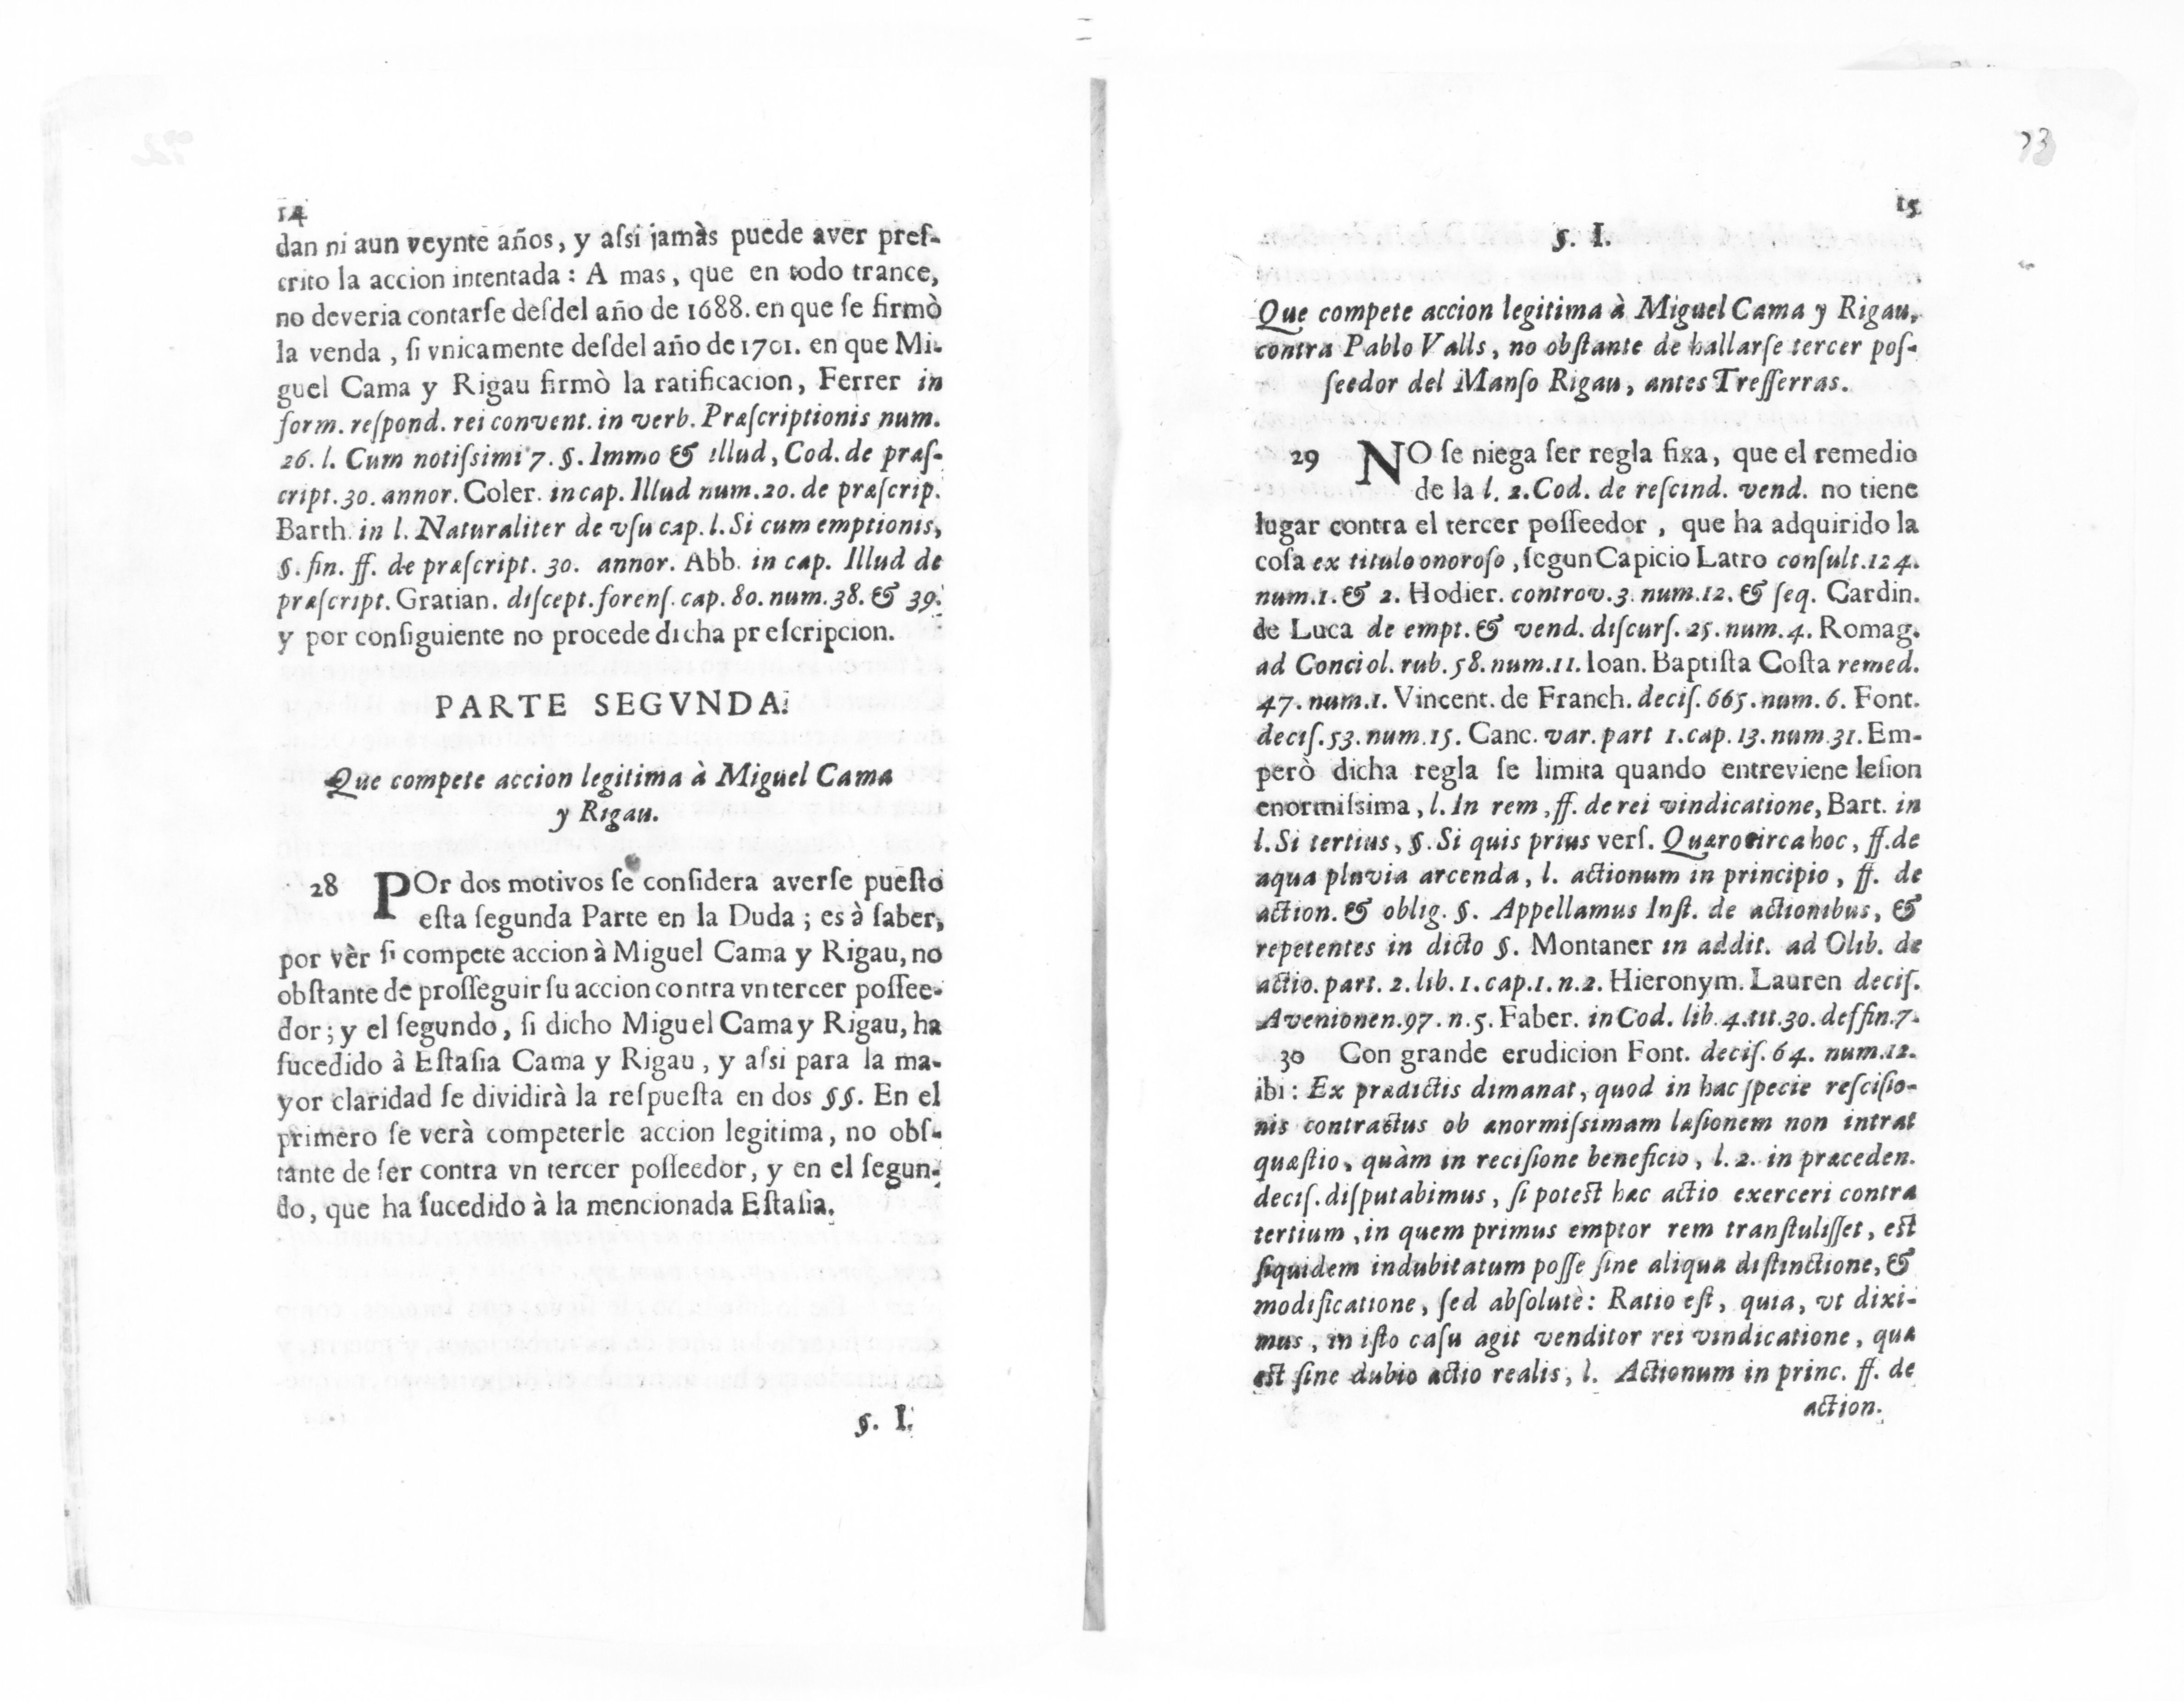 14
dan ni aun veynte años, y aſsi jamàs puede aver preſ-
crito la accion intentada : A mas, que en todo trance,
no deveria contarſe deſdel año de 1688. en que ſe firmò
la venda, ſi vnicamente deſdel año de 1701. en que Mi-
guel Cama y Rigau firmò la ratificacion, Ferrer in
form. reſpond. rei convent. in verb. Præſcriptionis num.
26. l. Cum notiſsimi 7. §. Immo & illud, Cod. de præſ-
cript. 30. annor. Coler. in cap. Illud num. 20. de præſcrip.
Barth. in l. Naturaliter de vſu cap. l. Si cum emptionis,
§. fin. ff. de præſcript. 30. annor. Abb. in cap. Illud de
præſcript. Gratian. diſcept. forenſ. cap. 80. num. 38. & 39.
y por conſiguiente no procede dicha preſcripcion.
PARTE SEGVNDA.
Que compete accion legitima à Miguel Cama
y Rigau.
28 POr dos motivos ſe conſidera averſe pueſto
eſta ſegunda Parte en la Duda ; es à ſaber,
por vèr ſi compete accion à Miguel Cama y Rigau, no
obſtante de proſſeguir ſu accion contra vn tercer poſſee-
dor ; y el ſegundo, ſi dicho Miguel Cama y Rigau, ha
ſucedido â Eſtaſia Cama y Rigau, y aſsi para la ma-
yor claridad ſe dividirà la reſpueſta en dos §§. En el
primero ſe verà competerle accion legitima, no obſ-
tante de ſer contra vn tercer poſſeedor, y en el ſegun-
do, que ha ſucedido à la mencionada Eſtaſia.
§. I.
73
15
§. I.
Que compete accion legitima à Miguel Cama y Rigau,
contra Pablo Valls, no obſtante de hallarſe tercer poſ-
ſeedor del Manſo Rigau, antes Treſſerras.
29 NO ſe niega ſer regla fixa, que el remedio
de la l. 2. Cod. de reſcind. vend. no tiene
lugar contra el tercer poſſeedor, que ha adquirido la
coſa ex titulo onoroſo, ſegun Capicio Latro conſult. 124.
num. 1. & 2. Hodier. controv. 3. num. 12. & ſeq. Cardin.
de Luca de empt. & vend. diſcurſ. 25. num. 4. Romag.
ad Conciol. rub. 58. num. 11. Ioan. Baptiſta Coſta remed.
47. num. 1. Vincent. de Franch. deciſ. 665. num. 6. Font.
deciſ. 53. num. 15. Canc. var. part 1. cap. 13. num. 31. Em-
però dicha regla ſe limita quando entreviene leſion
enormiſsima, l. In rem, ff. de rei vindicatione, Bart. in
l. Si tertius, §. Si quis prius verſ. Quæro circa hoc, ff. de
aqua pluvia arcenda, l. actionum in principio, ff. de
action. & oblig. §. Appellamus Inſt. de actionibus, &
repetentes in dicto §. Montaner in addit. ad Olib. de
actio. part. 2. lib. 1. cap. 1. n. 2. Hieronym. Lauren deciſ.
Avenionen. 97. n. 5. Faber. in Cod. lib. 4. tit. 30. deffin. 7.
30 Con grande erudicion Font. deciſ. 64. num. 12.
ibi : Ex prædictis dimanat, quod in hac ſpecie reſciſio-
nis contractus ob ænormiſsimam læſionem non intrat
quæſtio, quàm in reciſione beneficio, l. 2. in præceden.
deciſ. diſputabimus, ſi poteſt hæc actio exerceri contra
tertium, in quem primus emptor rem tranſtuliſſet, eſt
ſiquidem indubitatum poſſe ſine aliqua diſtinctione, &
modificatione, ſed abſolutè : Ratio eſt, quia, vt dixi-
mus, in iſto caſu agit venditor rei vindicatione, quæ
eſt ſine dubio actio realis, l. Actionum in princ. ff. de
action.